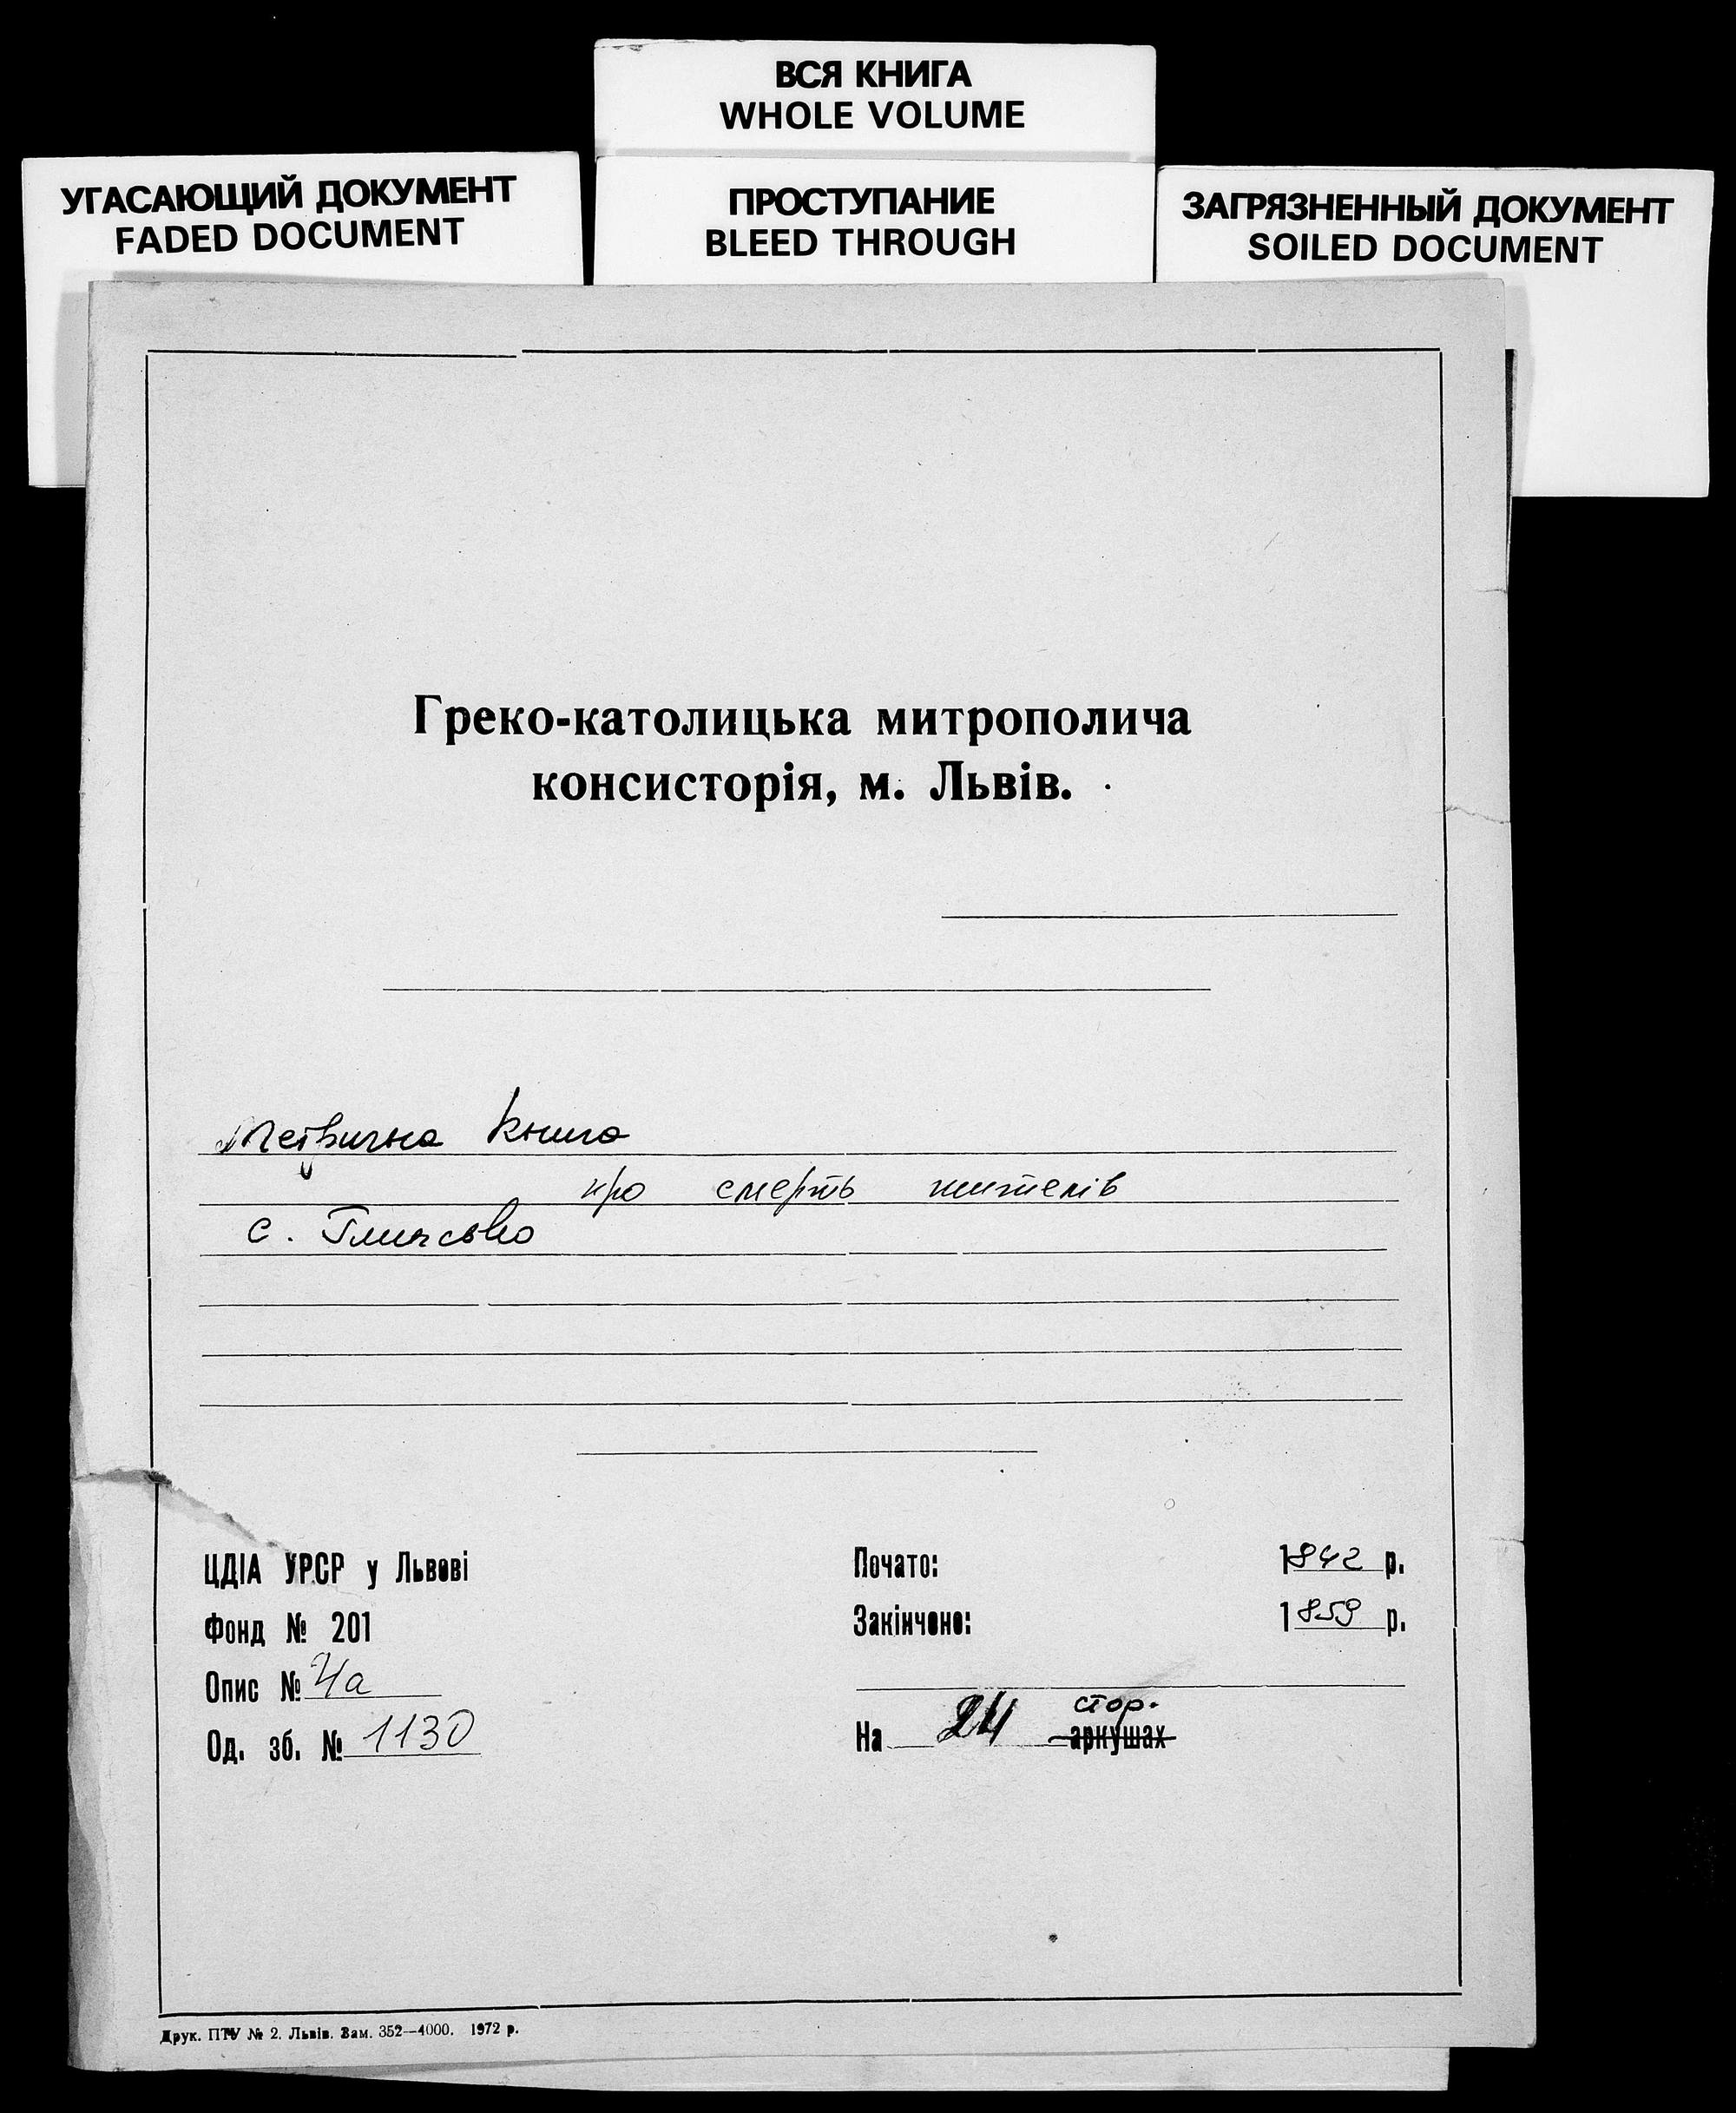 ВСЯ КНИГА
WHOLE VOLUME
УГАСАЮЩИЙ ДОКУМЕНТ
FADED DOCUMENT
ПРОСТУПАНИЕ
BLEED THROUGH
ЗАГРЯЗНЕННЫЙ ДОКУМЕНТ
SOILED DOCUMENT
Греко-католицька митрополича
консисторія, м. Львів.
Метрична книга
про смерть жителів
с.
ЦДІА УРСР у Львові
Фонд № 201
Опис № 4а
Од. зб. № 1130
Почато: 1842 р.
Закінчено: 1859 р.
стор.
На 24 аркушах
Друк. ПТУ № 2. Львів. Зам. 352—4000. 1972 р.